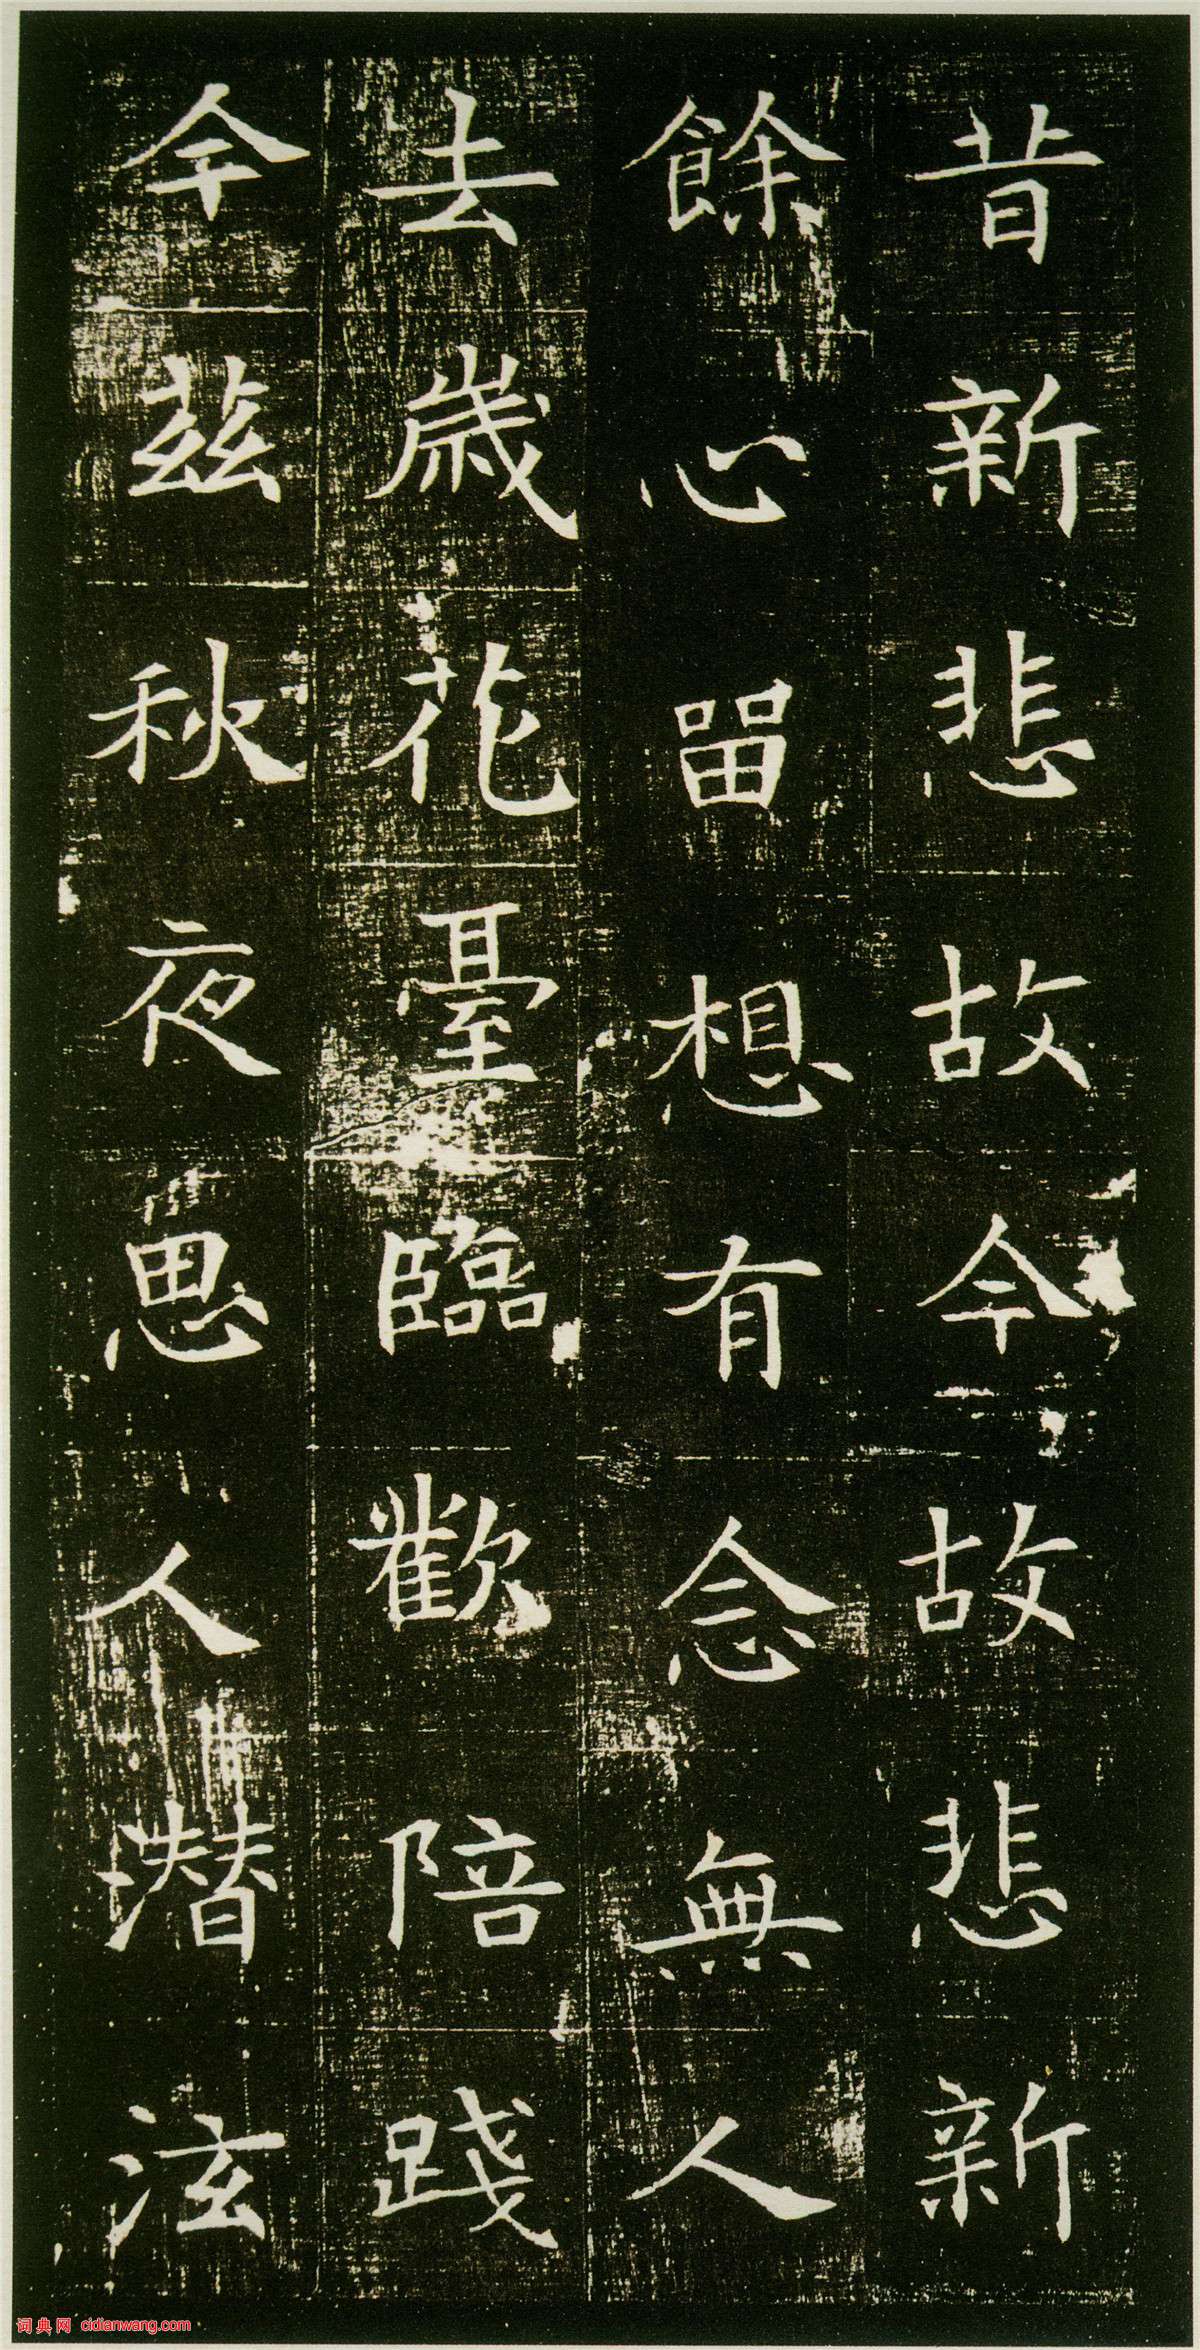 昔新悲故今故悲新
餘心留想有念無人
去歲花臺臨歡陪踐
今茲秋夜思人潛泫
词典网 cidianwang.com